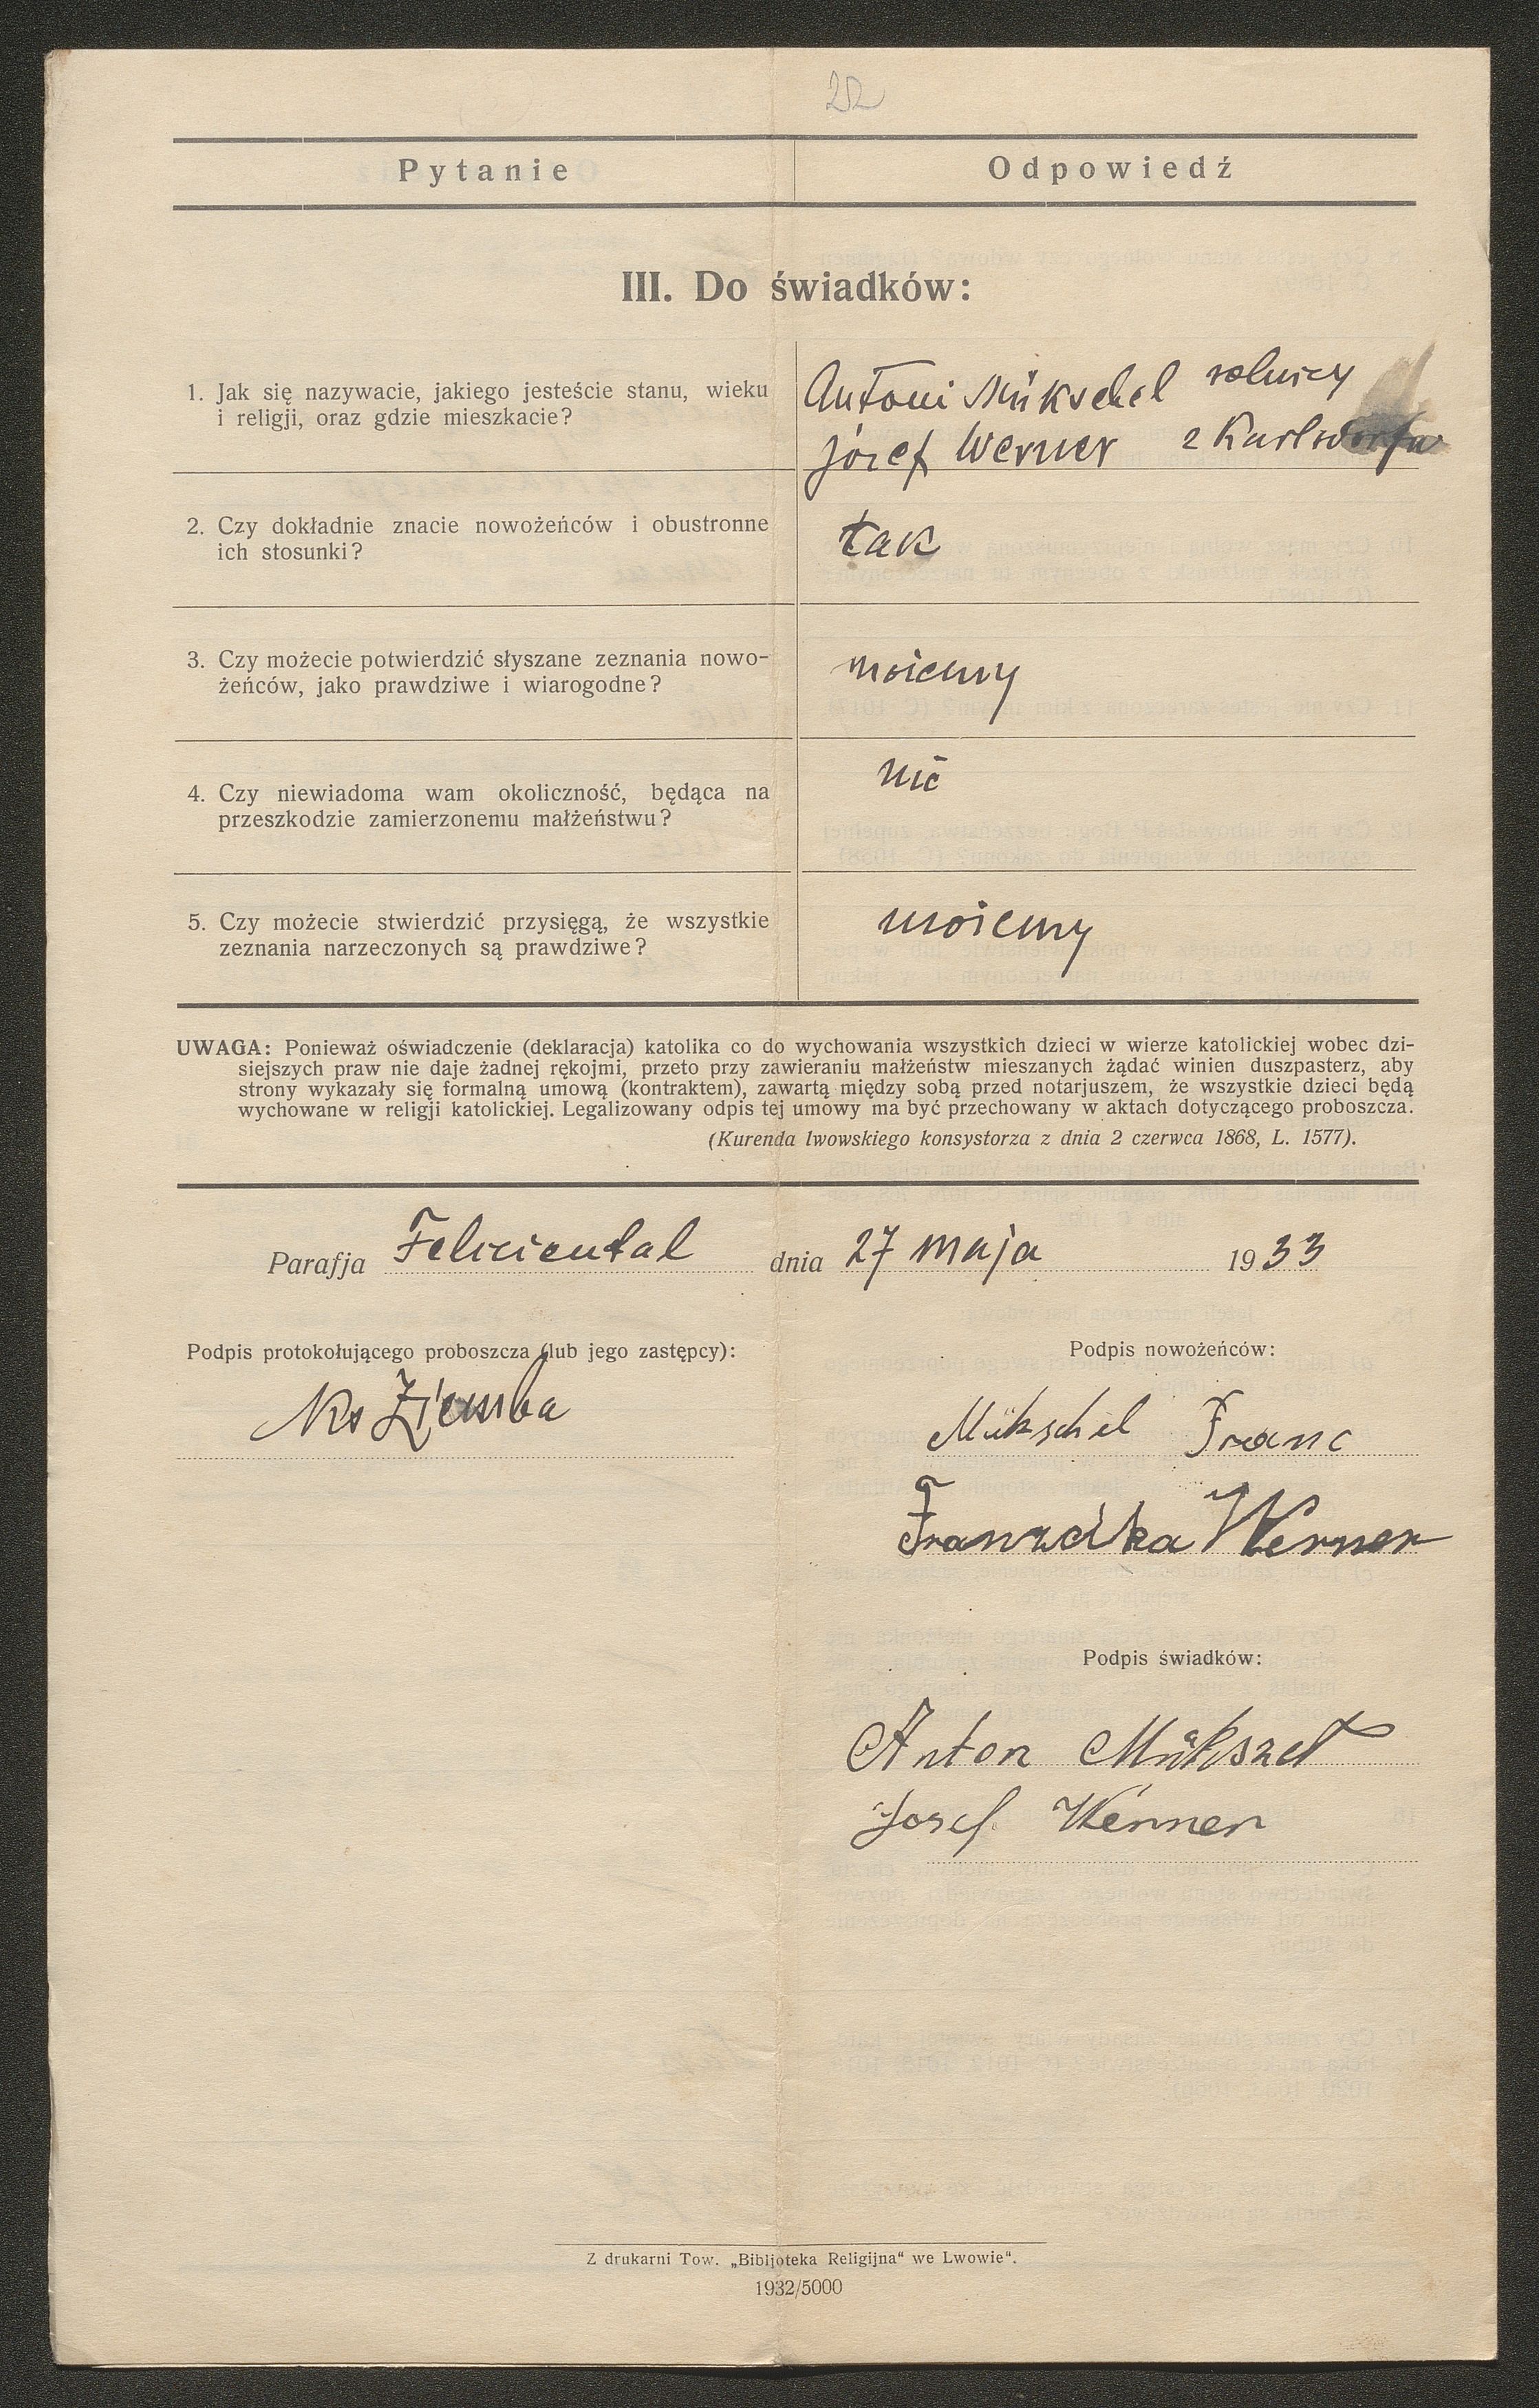 22
Pytanie Odpowiedź
III. Do świadków:
1. Jak się nazywacie, jakiego jesteście stanu, wieku
i religji, oraz gdzie mieszkacie?
Antoni Mükschel rolnicy
Józef Werner z Karlsdorfu
2. Czy dokładnie znacie nowożeńców i obustronne
ich stosunki?
tak
3. Czy możecie potwierdzić słyszane zeznania nowo-
żeńców, jako prawdziwe i wiarogodne?
możemy
4. Czy niewiadoma wam okoliczność, będąca na
przeszkodzie zamierzonemu małżeństwu?
nic
5. Czy możecie stwierdzić przysięgą, że wszystkie
zeznania narzeczonych są prawdziwe?
możemy
UWAGA: Ponieważ oświadczenie (deklaracja) katolika co do wychowania wszystkich dzieci w wierze katolickiej wobec dzi-
siejszych praw nie daje żadnej rękojmi, przeto przy zawieraniu małżeństw mieszanych żądać winien duszpasterz, aby
strony wykazały się formalną umową (kontraktem), zawartą między sobą przed notarjuszem, że wszystkie dzieci będą
wychowane w religji katolickiej. Legalizowany odpis tej umowy ma być przechowany w aktach dotyczącego proboszcza.
(Kurenda lwowskiego konsystorza z dnia 2 czerwca 1868, L. 1577).
Parafja Feliciental dnia 27 maja 1933
Podpis protokołującego proboszcza (lub jego zastępcy): Podpis nowożeńców:
Ks Ziemba
Mükschel Franc
Franzcika Werner
Podpis świadków:
Anton Mükszel
Josef Werner
Z drukarni Tow. „Bibljoteka Religijna“ we Lwowie“.
1932/5000